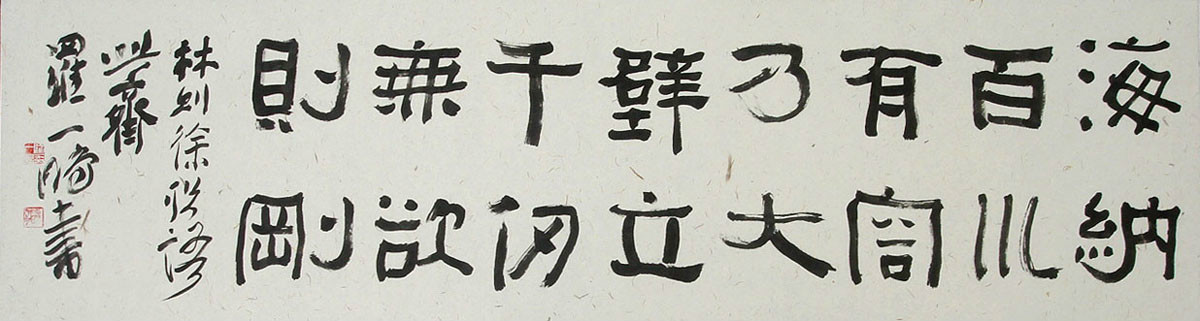 海納
百川
有容
乃大
壁立
千仞
無欲
則剛
林則徐聯語
齋
羅一書